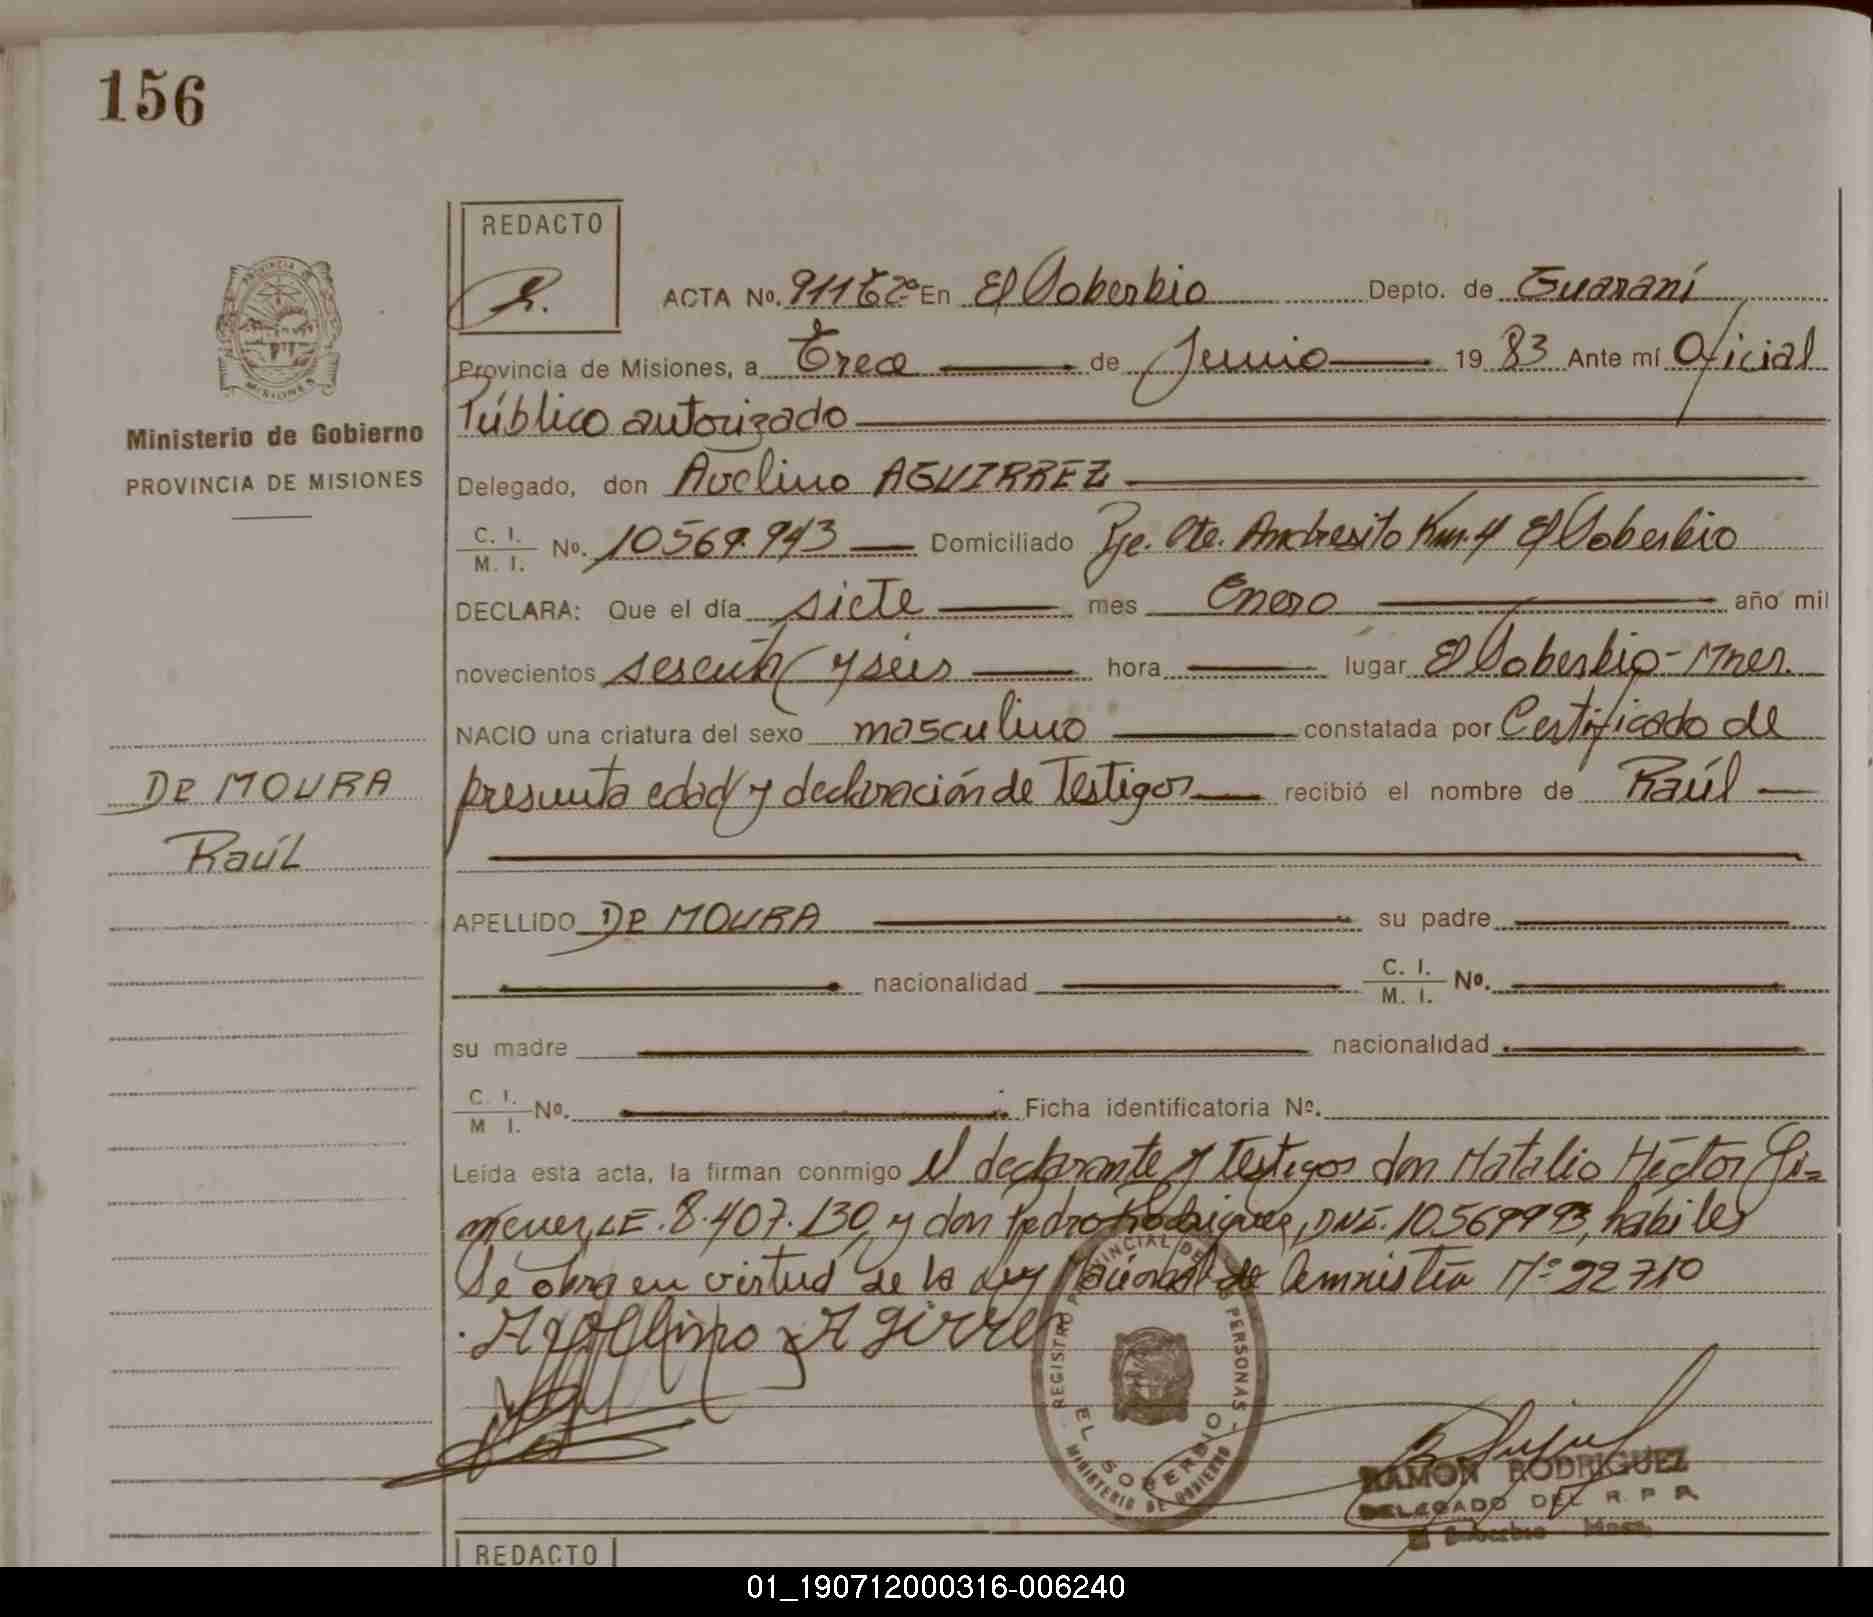 156
REDACTO
PROVINCIA DE
MISIONES
Ministerio de Gobierno
PROVINCIA DE MISIONES
ACTA No. 911 T2º En El Soberbio Depto. de Guaraní
Provincia de Misiones, a Trece de Junio 1983 Ante mí Oficial
Público autorizado
Delegado, don Avelino AGUIRREZ
C. I. / M. I. No. 10569.943 Domiciliado Pje. Cte. Andresito Km. 4 El Soberbio
DECLARA: Que el día siete mes Enero año mil
novecientos sesenta y seis hora lugar El Soberbio - Mnes.
NACIO una criatura del sexo masculino constatada por Certificado de
presunta edad y declaración de Testigos recibió el nombre de Raúl
DE MOURA
Raúl
APELLIDO DE MOURA su padre
nacionalidad C. I. / M. I. No.
su madre nacionalidad
C. I. / M I. No. Ficha identificatoria Nº.
Leída esta acta, la firman conmigo el declarante y testigos don Natalio Héctor Gi=
menez, LE. 8.407.130, y don Pedro Rodriguez, DNI. 10569993, hábiles
Se obra en virtud de la Ley Nacional de Amnistía Nº 22710
REGISTRO PROVINCIAL DE PERSONAS
EL SOBERBIO
MINISTERIO DE GOBIERNO
RAMON RODRIGUEZ
DELEGADO DEL R. P. P.
El Soberbio Mnes.
REDACTO
01_190712000316-006240